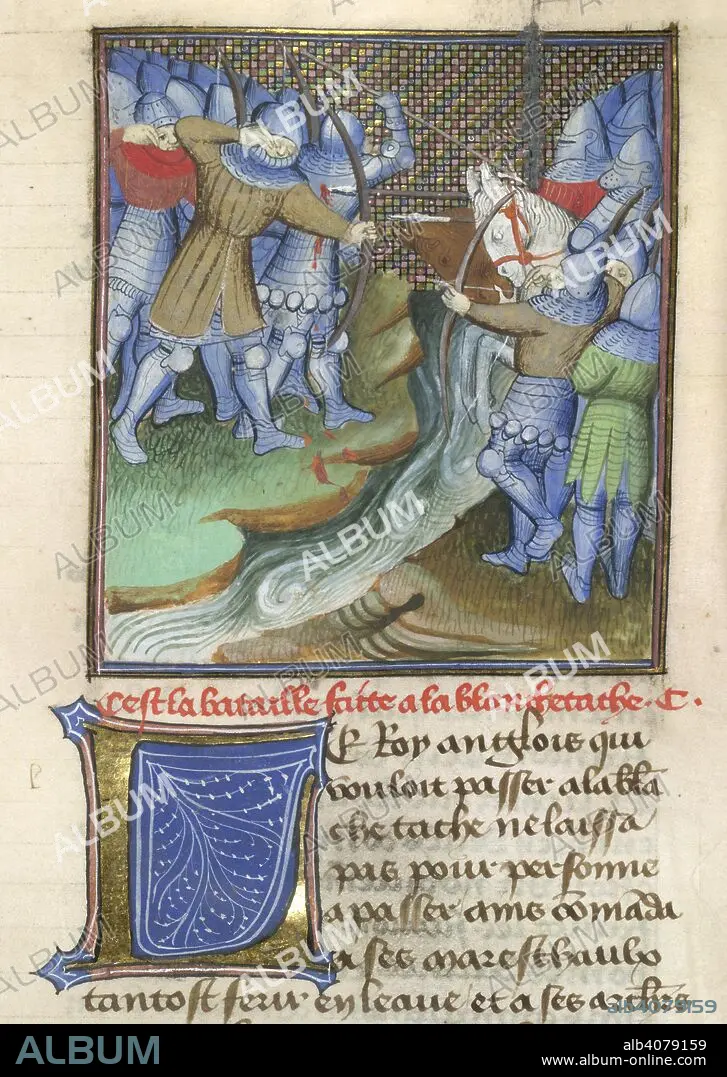 C'est la bataille faitte a la blanchetache. C.
LE Roy anglois qui
vouloit passer a la bla
che tache ne laissa
pas pour personne
a passer ains comada
a ses mareschaulx
tantost ferir en leaue et a ses archers
ALBUM
alb4079159
alb4079159
www.album-online.com